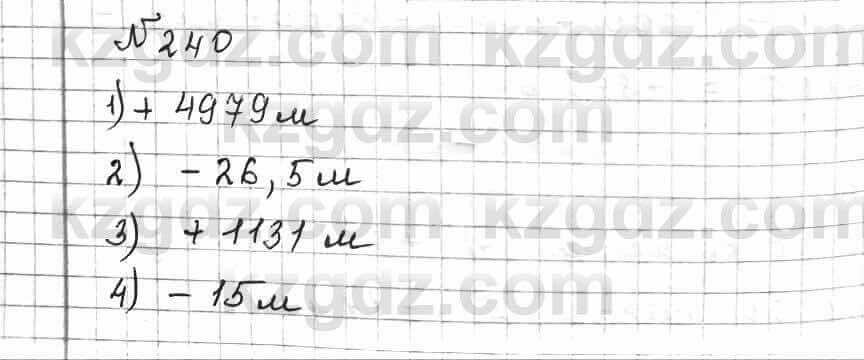 №240
1) + 4979 м
2) - 26,5 м
3) + 1131 м
4) - 15 м
kzgdz.com kzgdz.com
kzgdz.com
kzgdz.com kzgdz.com
kzgdz.com